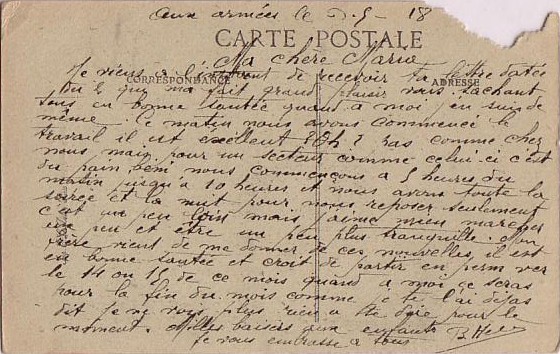 aux armées le 2.5-18
CARTE POSTALE
Ma chère Maria
Je viens à l'instant de recevoir ta lettre datée
CORRESPONDANCE ADRESSE
du 6 qui ma fait grand plaisir vous sachant
tous en bonne santée quand a moi j'en suis de
même. Ce matin nous avons commencé le
travail il est excellent pas comme cher
nous mais pour un secteur comme celui ci c'est
du pain beni nous commençons a 5 heures du
matin jusqu'a 10 heures et nous avons toute la
et la nuit pour nous reposer seulement
c'est un peu loin mais j'aime mieu marcher
un peu et être un peu plus tranquille. Mon
frère vient de me donner de ces nouvelles, il est
en bonne santée et croit de partir en perm ver
le 14 ou 15 de ce mois quand a moi ce seras
pour la fin du mois comme je te l'ai dejas
dit je ne vois plus rien a te dire pour le
moment. Milles baisers aux enfants
Je vous embrasse a tous